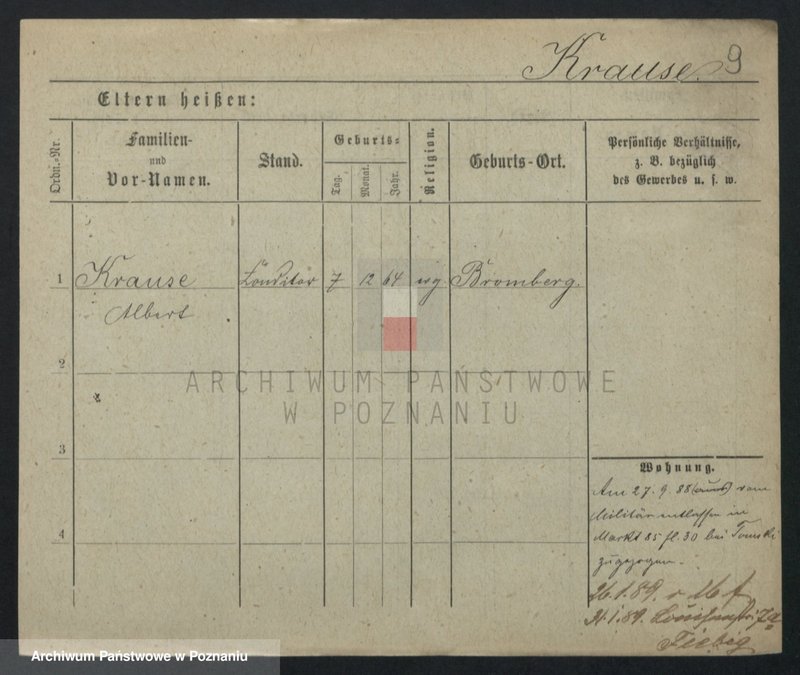 Krause. 9
Eltern heißen:
Ordn.-Nr.
Familien-
und
Vor-Namen.
Stand.
Geburts-
Tag.
Monat.
Jahr.
Religion.
Geburts-Ort.
Persönliche Verhältnisse,
z. B. bezüglich
des Gewerbes u. s. w.
1 Krause Conditor 7 12 64 evg. Bromberg.
Albert
2
ARCHIWUM PAŃSTWOWE
W POZNANIU
3
Wohnung.
Am 27. 9. 88 vom
Militär entlassen in
4
Markt 85 fl. 30 bei Tomski
zugezogen.
26.1.89. v
31.1.89. Louisenstr. 7a
Fiebig
Archiwum Państwowe w Poznaniu